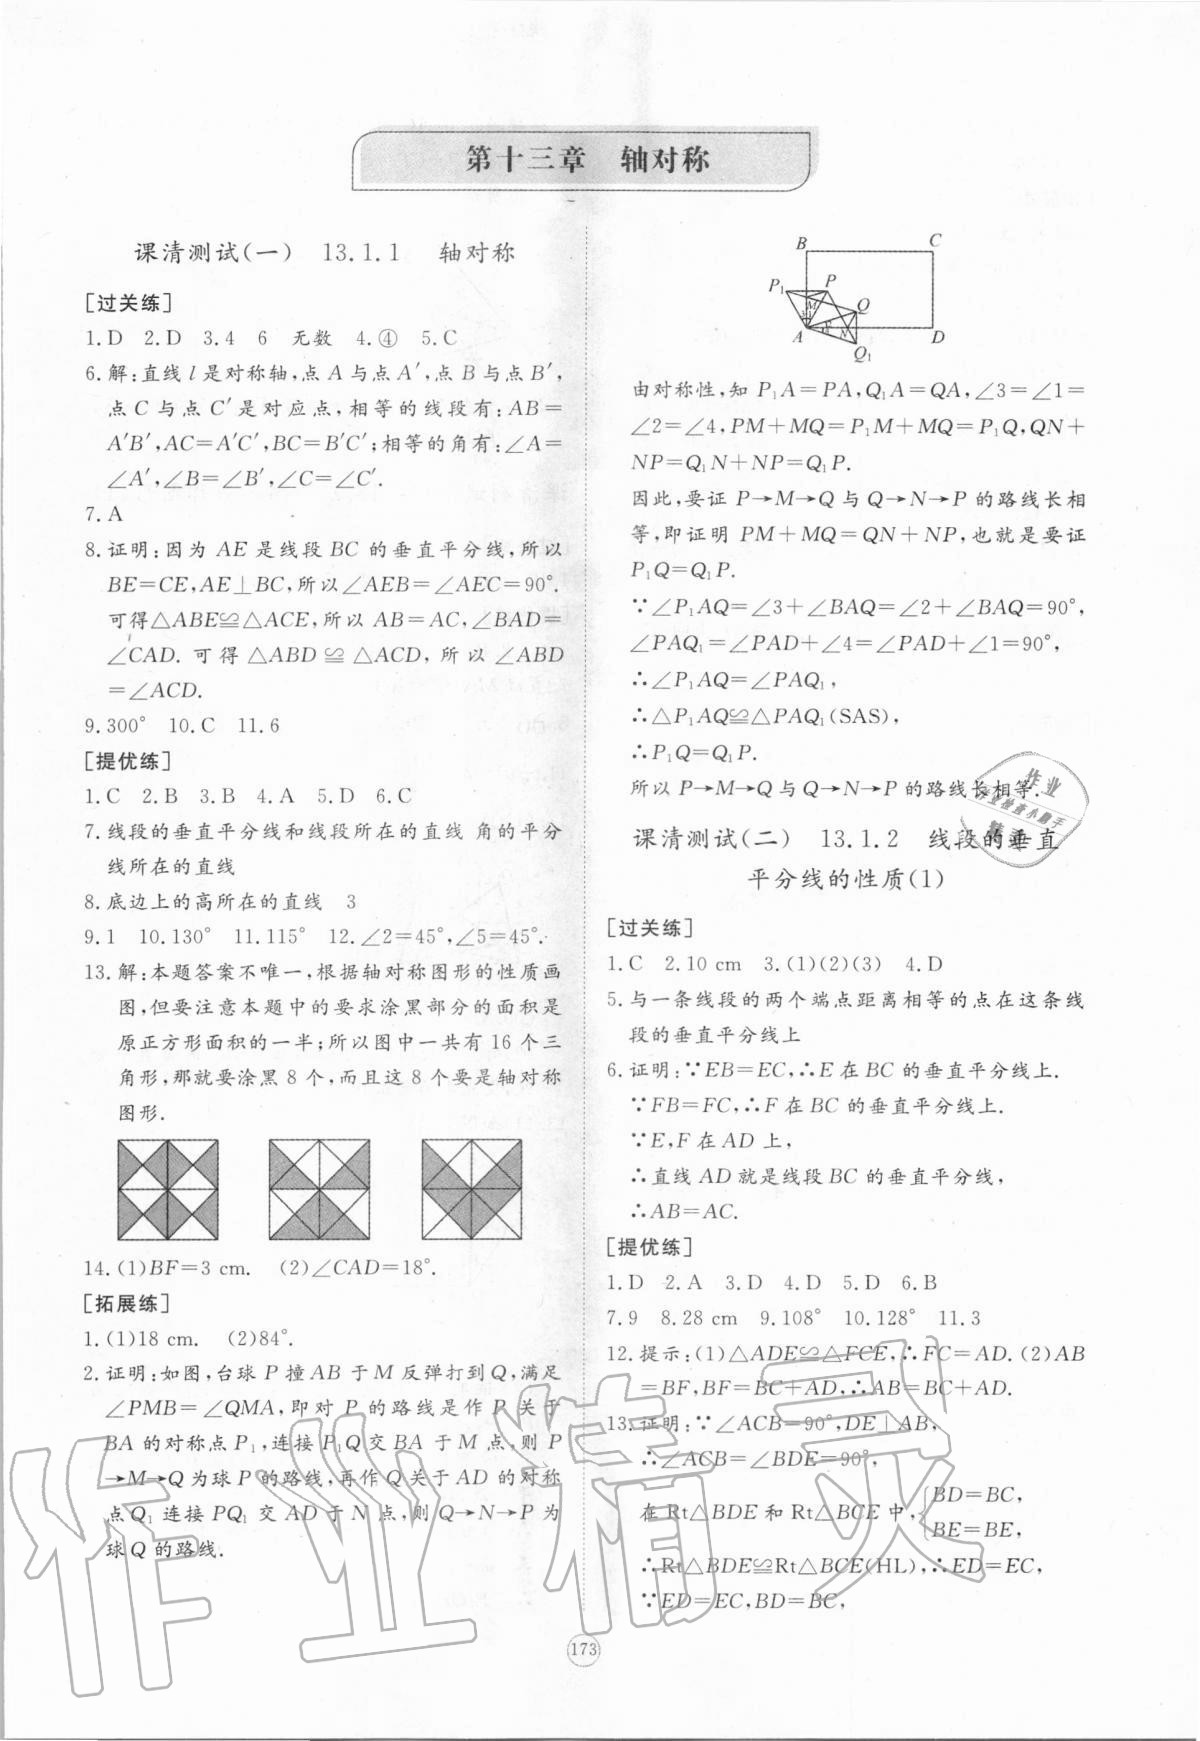 第十三章 轴对称
课清测试(一) 13.1.1 轴对称
[过关练]
1.D 2.D 3.4 6 无数 4.④ 5.C
6.解:直线 l 是对称轴,点 A 与点 A′,点 B 与点 B′,
点 C 与点 C′是对应点,相等的线段有:AB=
A′B′,AC=A′C′,BC=B′C′;相等的角有:∠A=
∠A′,∠B=∠B′,∠C=∠C′.
7.A
8.证明:因为 AE 是线段 BC 的垂直平分线,所以
BE=CE,AE⊥BC,所以∠AEB=∠AEC=90°.
可得△ABE≌△ACE,所以 AB=AC,∠BAD=
∠CAD. 可得 △ABD ≌ △ACD,所以 ∠ABD
=∠ACD.
9.300° 10.C 11.6
[提优练]
1.C 2.B 3.B 4.A 5.D 6.C
7.线段的垂直平分线和线段所在的直线 角的平分
线所在的直线
8.底边上的高所在的直线 3
9.1 10.130° 11.115° 12.∠2=45°,∠5=45°.
13.解:本题答案不唯一,根据轴对称图形的性质画
图,但要注意本题中的要求涂黑部分的面积是
原正方形面积的一半;所以图中一共有 16 个三
角形,那就要涂黑 8 个,而且这 8 个要是轴对称
图形.
14.(1)BF=3 cm. (2)∠CAD=18°.
[拓展练]
1.(1)18 cm. (2)84°.
2.证明:如图,台球 P 撞 AB 于 M 反弹打到 Q,满足
∠PMB=∠QMA,即对 P 的路线是作 P 关于
BA 的对称点 P₁,连接 P₁Q 交 BA 于 M 点,则 P
→M→Q 为球 P 的路线,再作 Q 关于 AD 的对称
点 Q₁ 连接 PQ₁ 交 AD 于 N 点,则 Q→N→P 为
球 Q 的路线.
B C
P₁ P
M Q
3 1
A N D
Q₁
由对称性,知 P₁A=PA,Q₁A=QA,∠3=∠1=
∠2=∠4,PM+MQ=P₁M+MQ=P₁Q,QN+
NP=Q₁N+NP=Q₁P.
因此,要证 P→M→Q 与 Q→N→P 的路线长相
等,即证明 PM+MQ=QN+NP,也就是要证
P₁Q=Q₁P.
∵∠P₁AQ=∠3+∠BAQ=∠2+∠BAQ=90°,
∠PAQ₁=∠PAD+∠4=∠PAD+∠1=90°,
∴∠P₁AQ=∠PAQ₁,
∴△P₁AQ≌△PAQ₁(SAS),
∴P₁Q=Q₁P.
所以 P→M→Q 与 Q→N→P 的路线长相等.
课清测试(二) 13.1.2 线段的垂直
平分线的性质(1)
[过关练]
1.C 2.10 cm 3.(1)(2)(3) 4.D
5.与一条线段的两个端点距离相等的点在这条线
段的垂直平分线上
6.证明:∵EB=EC,∴E 在 BC 的垂直平分线上.
∵FB=FC,∴F 在 BC 的垂直平分线上.
∵E,F 在 AD 上,
∴直线 AD 就是线段 BC 的垂直平分线,
∴AB=AC.
[提优练]
1.D 2.A 3.D 4.D 5.D 6.B
7.9 8.28 cm 9.108° 10.128° 11.3
12.提示:(1)△ADE≌△FCE,∴FC=AD.(2)AB
=BF,BF=BC+AD,∴AB=BC+AD.
13.证明:∵∠ACB=90°,DE⊥AB,
∴∠ACB=∠BDE=90°,
在 Rt△BDE 和 Rt△BCE 中,{BD=BC,
BE=BE,
∴Rt△BDE≌Rt△BCE(HL),∴ED=EC,
∵ED=EC,BD=BC,
173
作业精灵
作业
精灵